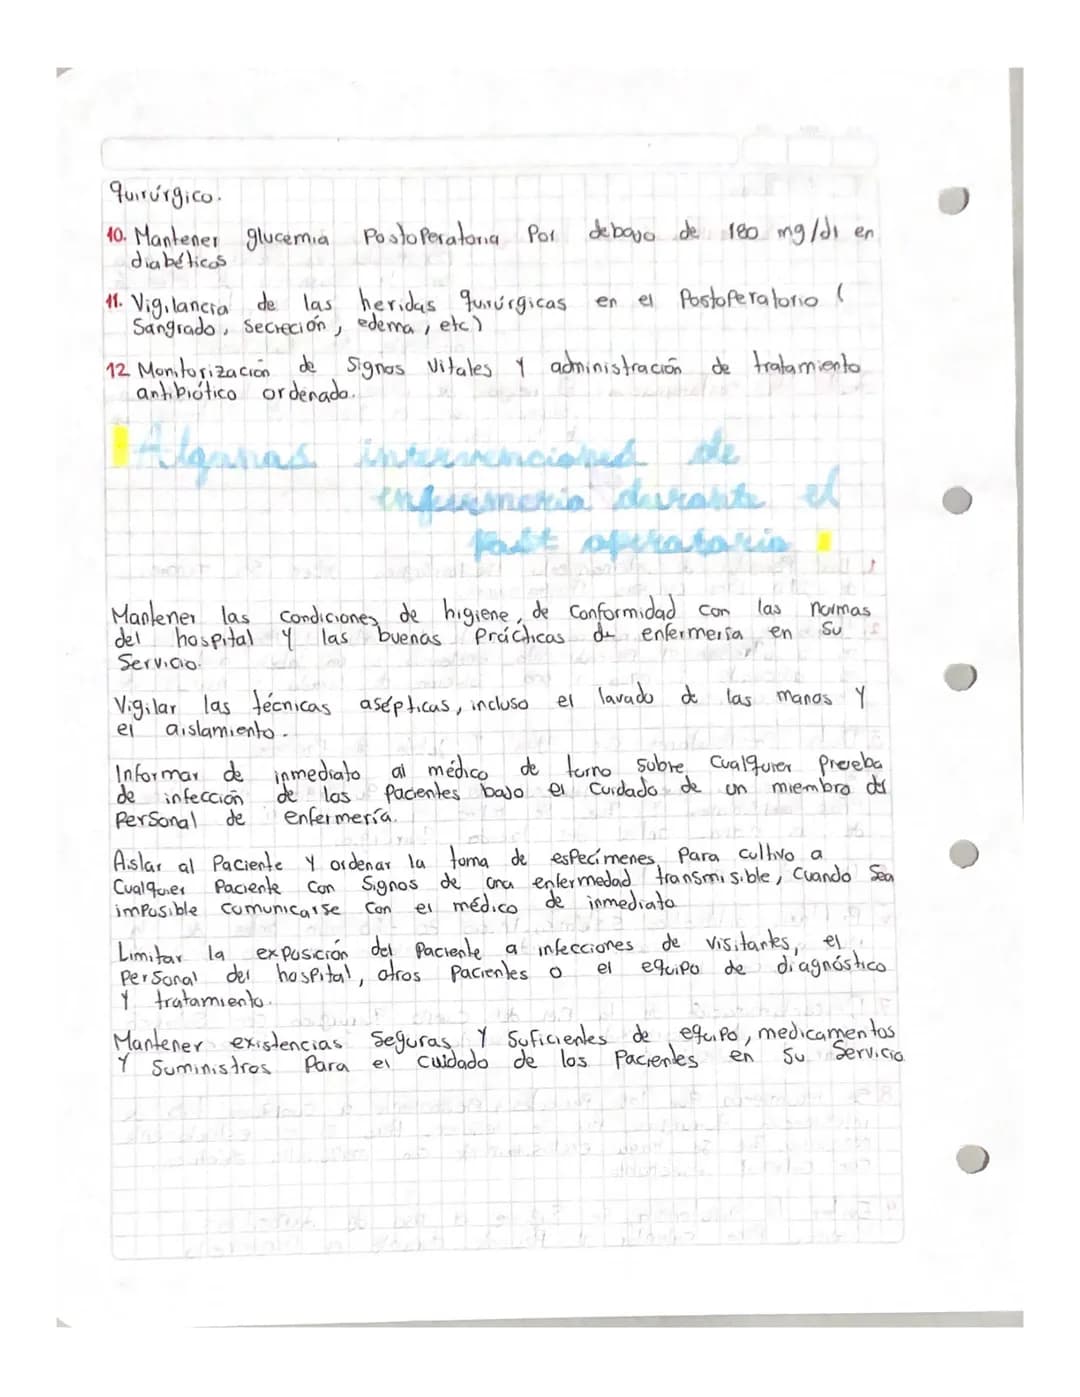 quirúrgico.
10. Mantener glucemia Postoperatoria Por debajo de 180 mg/dl en
diabéticos
11. Vigilancia de las heridas quirúrgicas en el Postoperatorio (
Sangrado, Secreción, edema, etc)
12 Monitorización de Signos Vitales Y administración de tratamiento
antibiótico ordenado.
Algunas intervenciones de
enfermeria durante el
Post operatorio
Mantener las condiciones de higiene, de conformidad con las normas
del hospital Y las buenas Prácticas de enfermería en Su
Servicio.
Vigilar las técnicas asépticas, incluso el lavado de las manos Y
el aislamiento.
Informar de inmediato al médico de turno Sobre Cualquier Preueba
de infección de los Pacientes bajo el Cuidado de un miembro del
Personal de enfermería.
Aislar al Paciente Y ordenar la toma de especímenes Para Cultivo a
Cualquier Paciente Con Signos de una enfermedad transmisible, Cuando Sea
imposible Comunicarse Con el médico de inmediato
Limitar la exposición del Paciente a infecciones de visitantes, el
Personal del hospital, otros Pacientes o el equipo de diagnóstico
Y tratamiento.
Mantener existencias Seguras Y Suficientes de equipo, medicamentos
Y Suministros Para el Cuidado de los Pacientes en Su Servicio